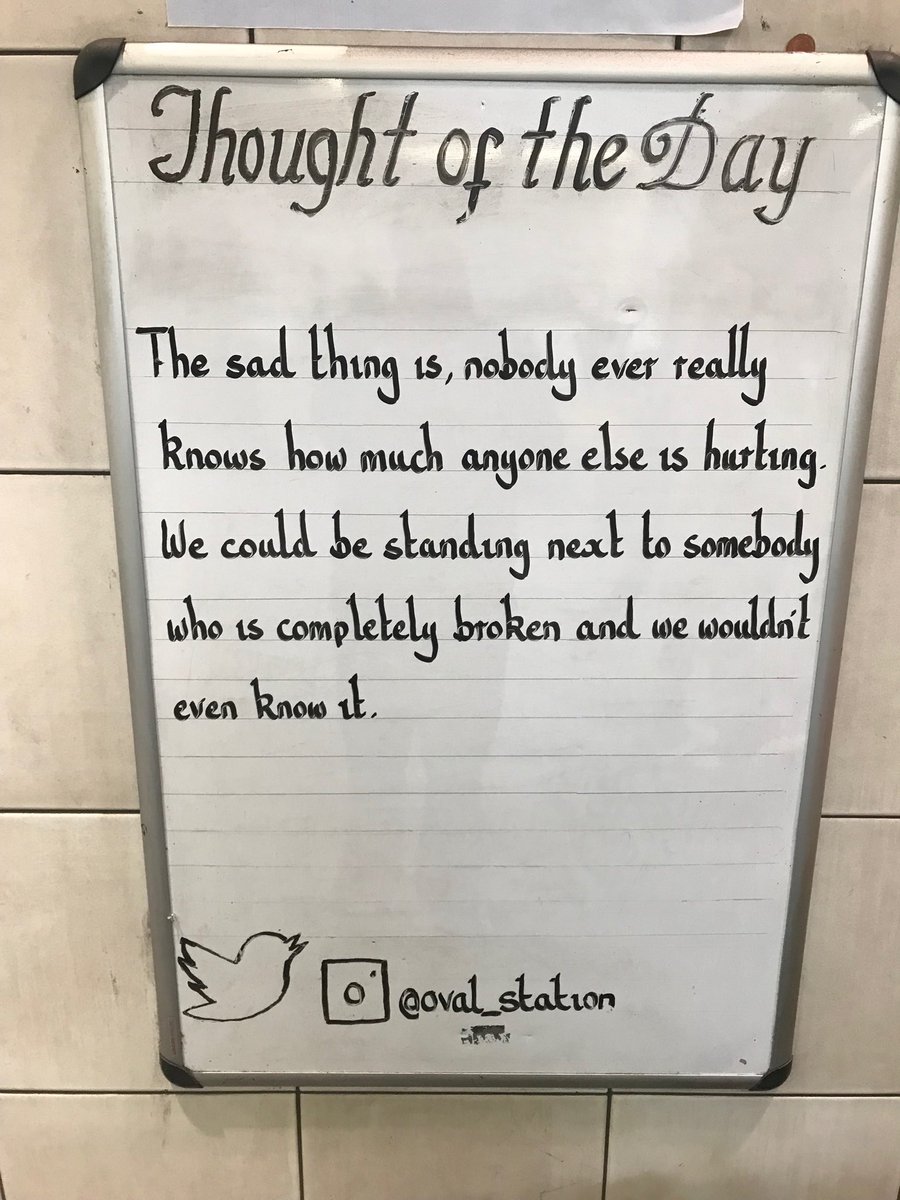 Thought of the Day
The sad thing is, nobody ever really
knows how much anyone else is hurting.
We could be standing next to somebody
who is completely broken and we wouldn't
even know it.
@oval_station